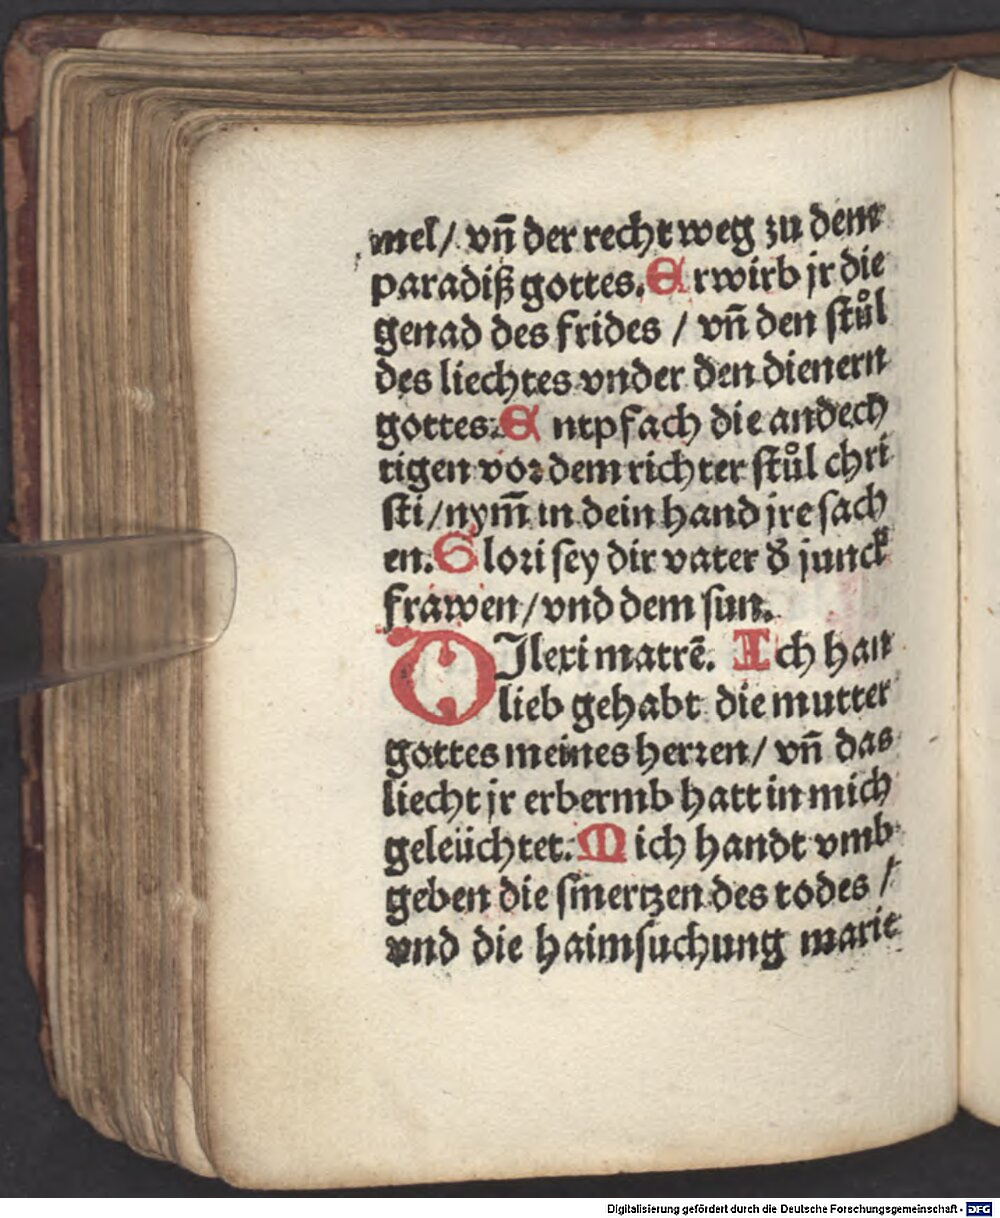 mel/ vn̄ der recht weg zu dem
paradiß gottes. Erwirb jr die
genad des frides / vn̄ den stůl
des liechtes vnder den dienern
gottes. Entpfach die andech
tigen vor dem richter stůl chri
sti/nym̄ in dein hand jre sach
en. Glori sey dir vater d̄ junck
frawen/vnd dem sun.
DJlexi matrē. Ich han
lieb gehabt die mutter
gottes meines herren/ vn̄ das
liecht jr erbermb hatt in mich
geleüchtet. Mich handt vmb
geben die smertzen des todes /
vnd die haimsuchung marie
Digitalisierung gefördert durch die Deutsche Forschungsgemeinschaft - DFG